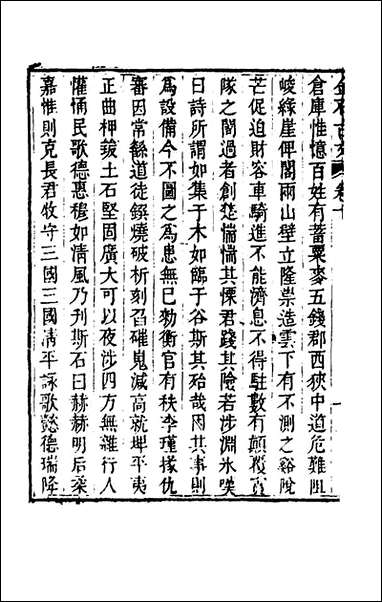 金石古文 卷十
倉庫惟憶百姓有蓄粟麥五錢郡西狹中道危難阻
峻緣崖俾閣兩山壁立隆崇造雲下有不測之谿阨
芒促迫財容車騎進不能濟息不得駐數有顛覆霣
隊之閒過者創楚惴惴其慄君踐其險若涉淵氷嘆
曰詩所謂如集于木如臨于谷斯其殆哉困其事則
爲設備今不圖之爲患無已勑衡官有秩李瑾掾仇
審因常繇道徒鐉燒破析刻𦤎磪嵬減高就埤平夷
正曲柙致土石堅固廣大可以夜涉四方無雍行人
懽悀民歌德惠穆如清風乃刋斯石曰赫赫明后柔
嘉惟則克長君牧守三國三國清平詠歌懿德瑞降